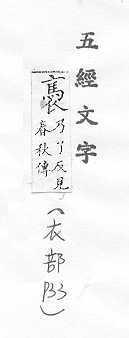 五經文字
褭
乃了反見
春秋傳
(衣部P33)